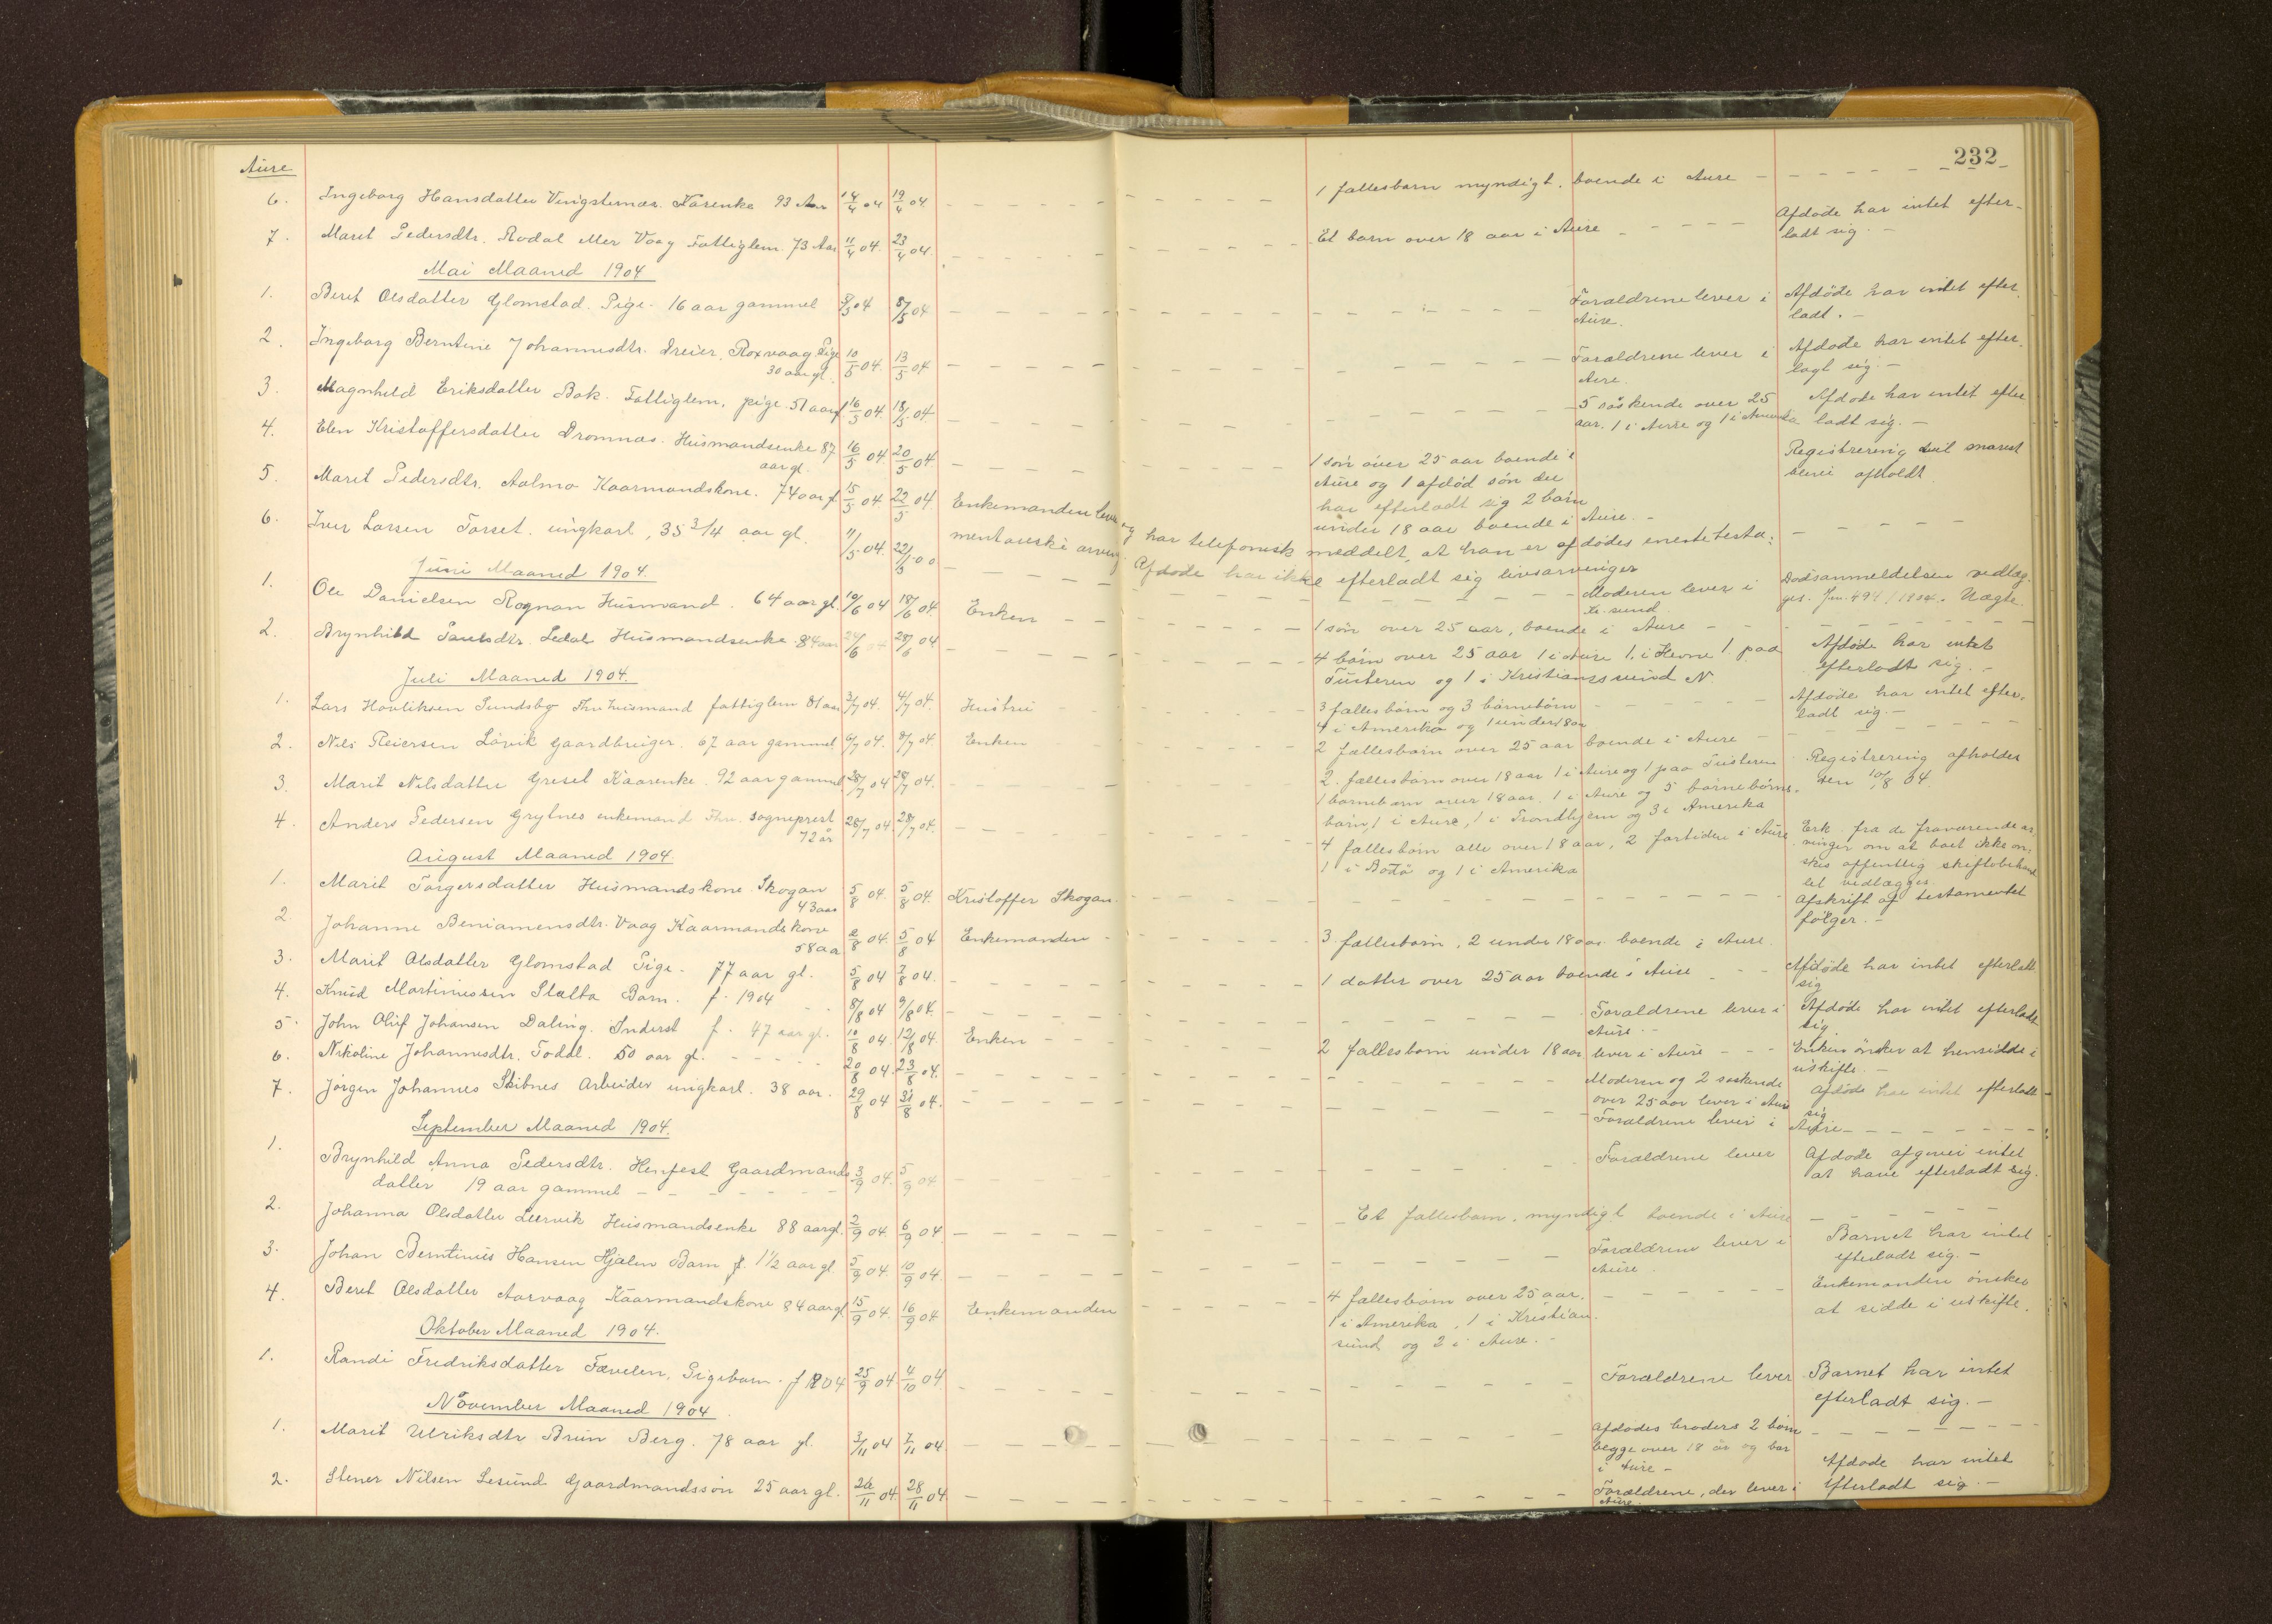 232
Aure
6. Ingeborg Hansdatter Vingsternæs. Kårenke 93 Aar 14/4 04 19/4 04. 1 fællesbarn myndigt. boende i Aure
7. Marit Pedersdtr. Rodal eller Vaag Fattiglem. 73 Aar 11/4 04. 23/4 04. Et barn over 18 aar i Aure Afdøde har intet efter-
ladt sig. -
Mai Maaned 1904
1. Beret Olsdatter Glomstad. Pige. 16 aar gammel 8/5 04 8/5 04 Forældrene lever i Afdøde har intet efter
Aure. ladt. -
2. Ingeborg Berntine Johannesdtr. Dreier. Roxvaag Pige 10/5 04. 13/5 04 Forældrene lever i Afdøde har intet efter.
30 aar gl. Aure. lagt sig. -
3. Magnhild Eriksdatter Bak. Fattiglem, pige. 51 aar gl. 16/5 04 18/5 04. 5 søskende over 25 Afdøde har intet efter
aar. 1 i Aure og 1 i Amerika ladt sig. -
4. Elen Kristoffersdatter Dromnæs. Husmandsenke 87 16/5 04. 20/5 04. 1 søn over 25 aar boende i Registrering vil snarest
aar gl. Aure og 1 afdød søn der blive afholdt
har efterladt sig 2 børn
under 18 aar boende i Aure. -
5. Marit Pedersdtr. Aalmo Kaarmandskone. 74 aar gl. 15/5 04. 22/5 04 Enkemanden lever og har telefonisk meddelt, at han er afdødes eneste testa-
mentariske arving. Afdøde har ikke efterladt sig livsarvinger
6. Iver Larsen Torset. ungkarl, 35 3/4 aar gl. 11/5 04. 22/5 00 Moderen lever i Dødsanmeldelsen vedlæg-
Kr. sund ges. Jrn. 494/1904. Nægte.
Juni Maaned 1904.
1. Ole Danielsen Rognan Husmand. 64 aar gl. 10/6 04 18/6 04. Enken 1 søn over 25 aar, boende i Aure
2. Brynhild Paulsdtr. Ledal Husmandsenke. 84 aar 24/6 04 28/6 04 4 børn over 25 aar 1 i Aure 1. i Hevne 1. paa Afdøde har intet
Tusteren og 1 i Kristianssund N. efterladt sig. -
Juli Maaned 1904.
1. Lars Hovliksen Sundsbø Fhv husmand fattiglem 81 aar 3/7 04. 4/7 04. Hustru 3 fællesbørn og 3 børnebørn Afdøde har intet efter.
4 i Amerika og 1 under 18 aar ladt sig. -
2. Nils Reiersen Løvik gaardbruger. 67 aar gammel 6/7 04. 8/7 04. Enken 2 fællesbørn over 25 aar boende i Aure
3. Marit Nilsdatter Gresel Kaarenke. 92 aar gammel 28/7 04 28/7 04. 2. fællesbørn over 18 aar 1 i Aure og 1 paa Tusteren Registrering afholdes
1 barnebarn over 18 aar. 1 i Aure og 5 børnebørns- den 10/8 04.
børn, 1 i Aure, 1 i Trondhjem og 3 i Amerika
4. Anders Pedersen Grylnes enkemand Fhv. sogneprest 28/7 04. 28/7 04. 4 fællesbørn alle over 18 aar, 2 fortiden i Aure Erk. fra de fraværende ar-
72 år 1 i Bodø og 1 i Amerika vinger om at boet ikke øn-
skes offentlig skiftebehand
let vedlægges
August Maaned 1904.
1. Marit Torgersdatter Husmandskone Skogan 5/8 04. 5/8 04. Kristoffer Skogan. Afskrift af testamentet
43 aar følger. -
2. Johanne Beniamensdtr. Vaag Kaarmandskone 2/8 04. 5/8 04 Enkemanden 3. fællesbørn, 2 under 18 aar boende i Aure.
58 aar
3. Marit Olsdatter Glomstad Pige. 77 aar gl. 5/8 04 7/8 04. 1 datter over 25 aar boende i Aure Afdøde har intet efterladt
sig
4. Knud Martinussen Stalta Barn. f. 1904 8/8 04 9/8 04. Forældrene lever i Afdøde har intet efterladt
Aure. - sig
5. John Oluf Johansen Daling. Inderst f. 47 aar gl. 10/8 04. 12/8 04. Enken 2 fællesbørn under 18 aar lever i Aure Enken ønsker at hensidde i
uskifte. -
6. Nikoline Johannesdtr. Todal. 50 aar gl. 20/8 04. 23/8 04. Moderen og 2 søskende Afdøde har intet efterladt
over 25 aar lever i Aure sig
7. Jørgen Johannes Skibnes Arbeider ungkarl. 38 aar. 29/8 04 31/8 04. Forældrene lever i Aure
September Maaned 1904.
1. Brynhild Anna Pedersdtr. Henfest Gaardmands 3/9 04. 5/9 04 Forældrene lever Afdøde afgives intet
datter 19 aar gammel at have efterladt sig.
2. Johanna Olsdatter Leervik Husmandsenke 88 aar gl. 2/9 04. 6/9 04. Et fællesbarn, myndigt boende i Aure
3. Johan Berntinus Hansen Hjalen Barn f. 1 1/2 aar gl 5/9 04. 10/9 04. Forældrene lever i Barnet har intet
Aure. efterladt sig. -
4. Beret Olsdatter Aarvaag Kaarmandskone 84 aar gl 15/9 04. 16/9 04 Enkemanden 4 fællesbørn over 25 aar. Enkemanden ønsker
1 i Amerika, 1 i Kristian. at sidde i uskifte.
sund og 2 i Aure. -
Oktober Maaned 1904.
1. Randi Fredriksdatter Fævelen, Pigebarn. f 1904 25/9 04 4/10 04. Forældrene lever Barnet har intet
efterladt sig. -
November Maaned 1904.
1. Marit Ulriksdtr Brun Berg. 78 aar gl. 3/11 04 7/11 04. Afdødes broders 2 børn
begge over 18 år og bor
i Aure -
2. Stener Nilsen Lesund Gaardmandssøn 25 aar gl. 26/11 04. 28/11 04. Forældrene, der lever i Afdøde har intet
Aure. efterladt sig. -